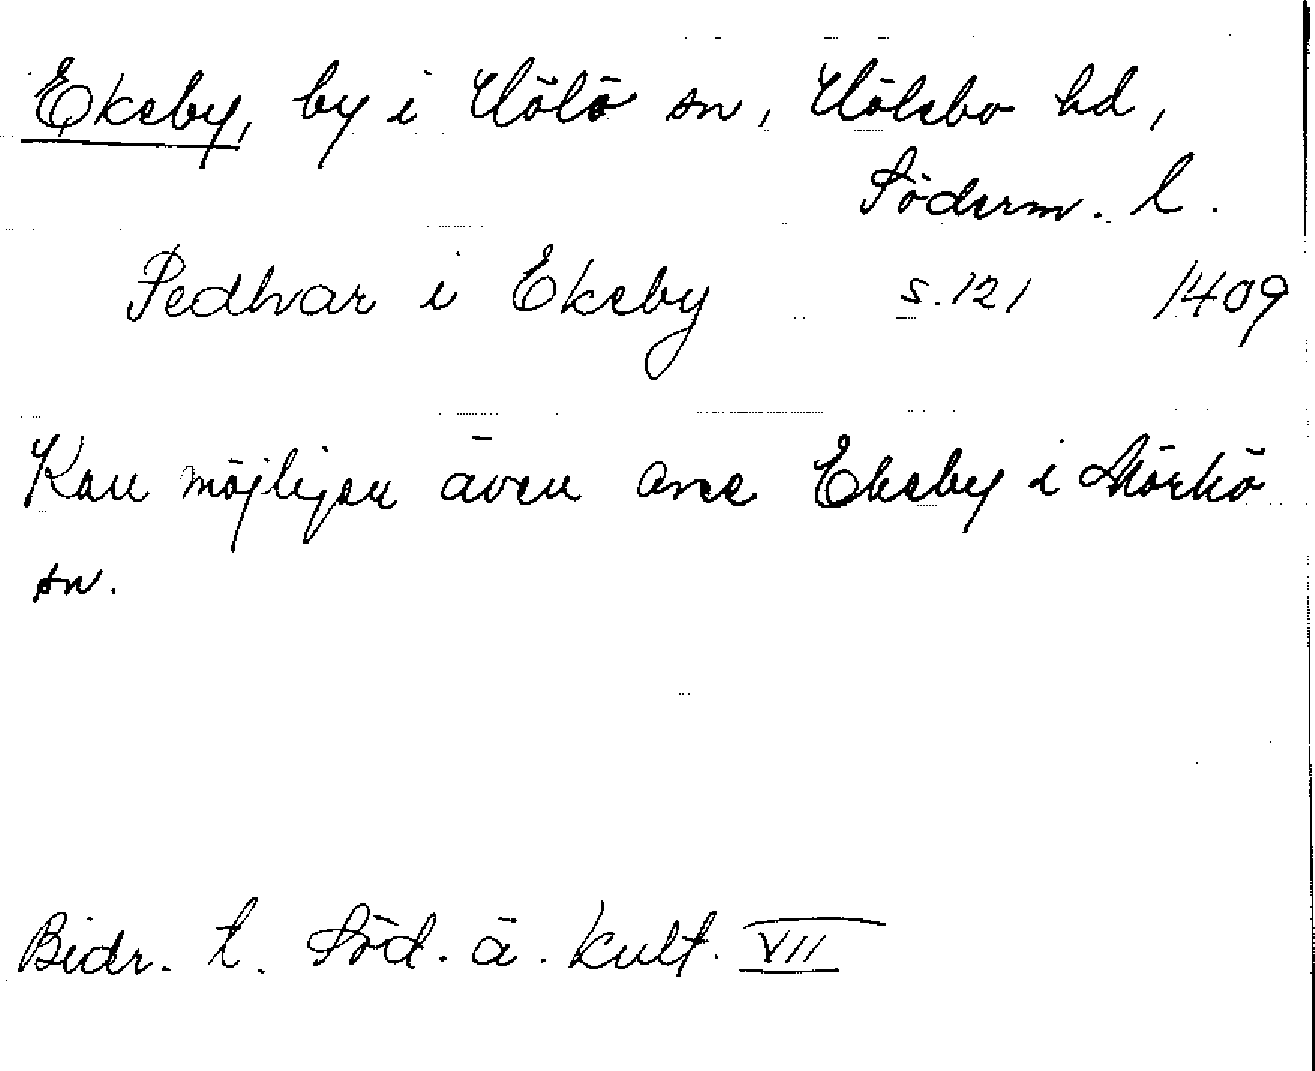 Eksby, by i Hölö sn, Hölebo hd,
Söderm. l.
Pedhvar i Eksby s. 121 1409
Kan möjligen även avse Eksby i Mörkö
sn.
Bidr. t. Söd. ä. kult. VII